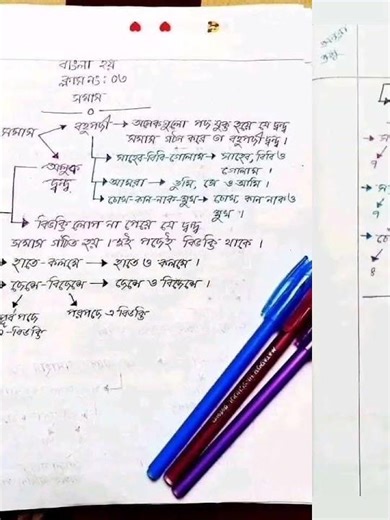 বাংলা ২য়
ক্লাস নং: ০৩
সমাস
সমাস → বহুপদী → অনেকগুলো পদ যুক্ত হয়ে যে দ্বন্দ্ব
সমাস গঠন করে তা বহুপদী দ্বন্দ্ব।
→ সাহেব-বিবি-গোলাম → সাহেব, বিবি ও
গোলাম।
অলুক
দ্বন্দ্ব
→ আমরা → তুমি, সে ও আমি।
→ চোখ-কান-নাক-মুখ → চোখ, কান নাক ও
মুখ।
→ বিভক্তি লোপ না পেয়ে যে দ্বন্দ্ব
সমাস গঠিত হয়। দুই পদেই বিভক্তি থাকে।
→ হাতে-কলমে → হাতে ও কলমে।
→ দেশে-বিদেশে → দেশে ও বিদেশে।
পূর্ব পদে
পরপদে এ বিভক্তি
-বিভক্তি